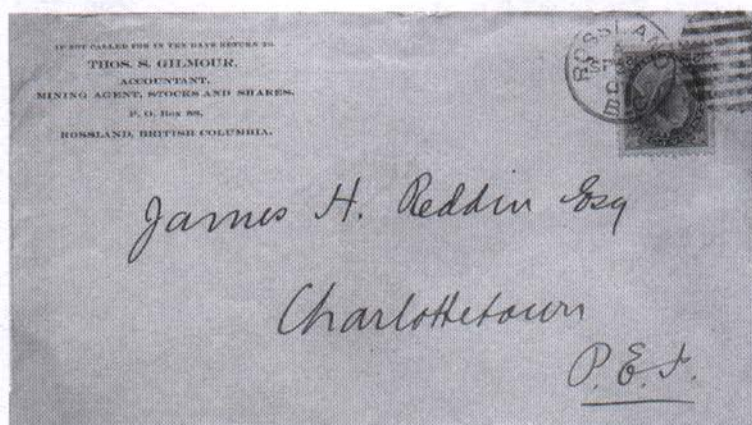 IF NOT CALLED FOR IN TEN DAYS RETURN TO
THOS. S. GILMOUR,
ACCOUNTANT,
MINING AGENT, STOCKS AND SHARES,
P. O. Box 88,
ROSSLAND, BRITISH COLUMBIA.
ROSSLAND
James H. Reddin Esq
Charlottetown
P.E.I.